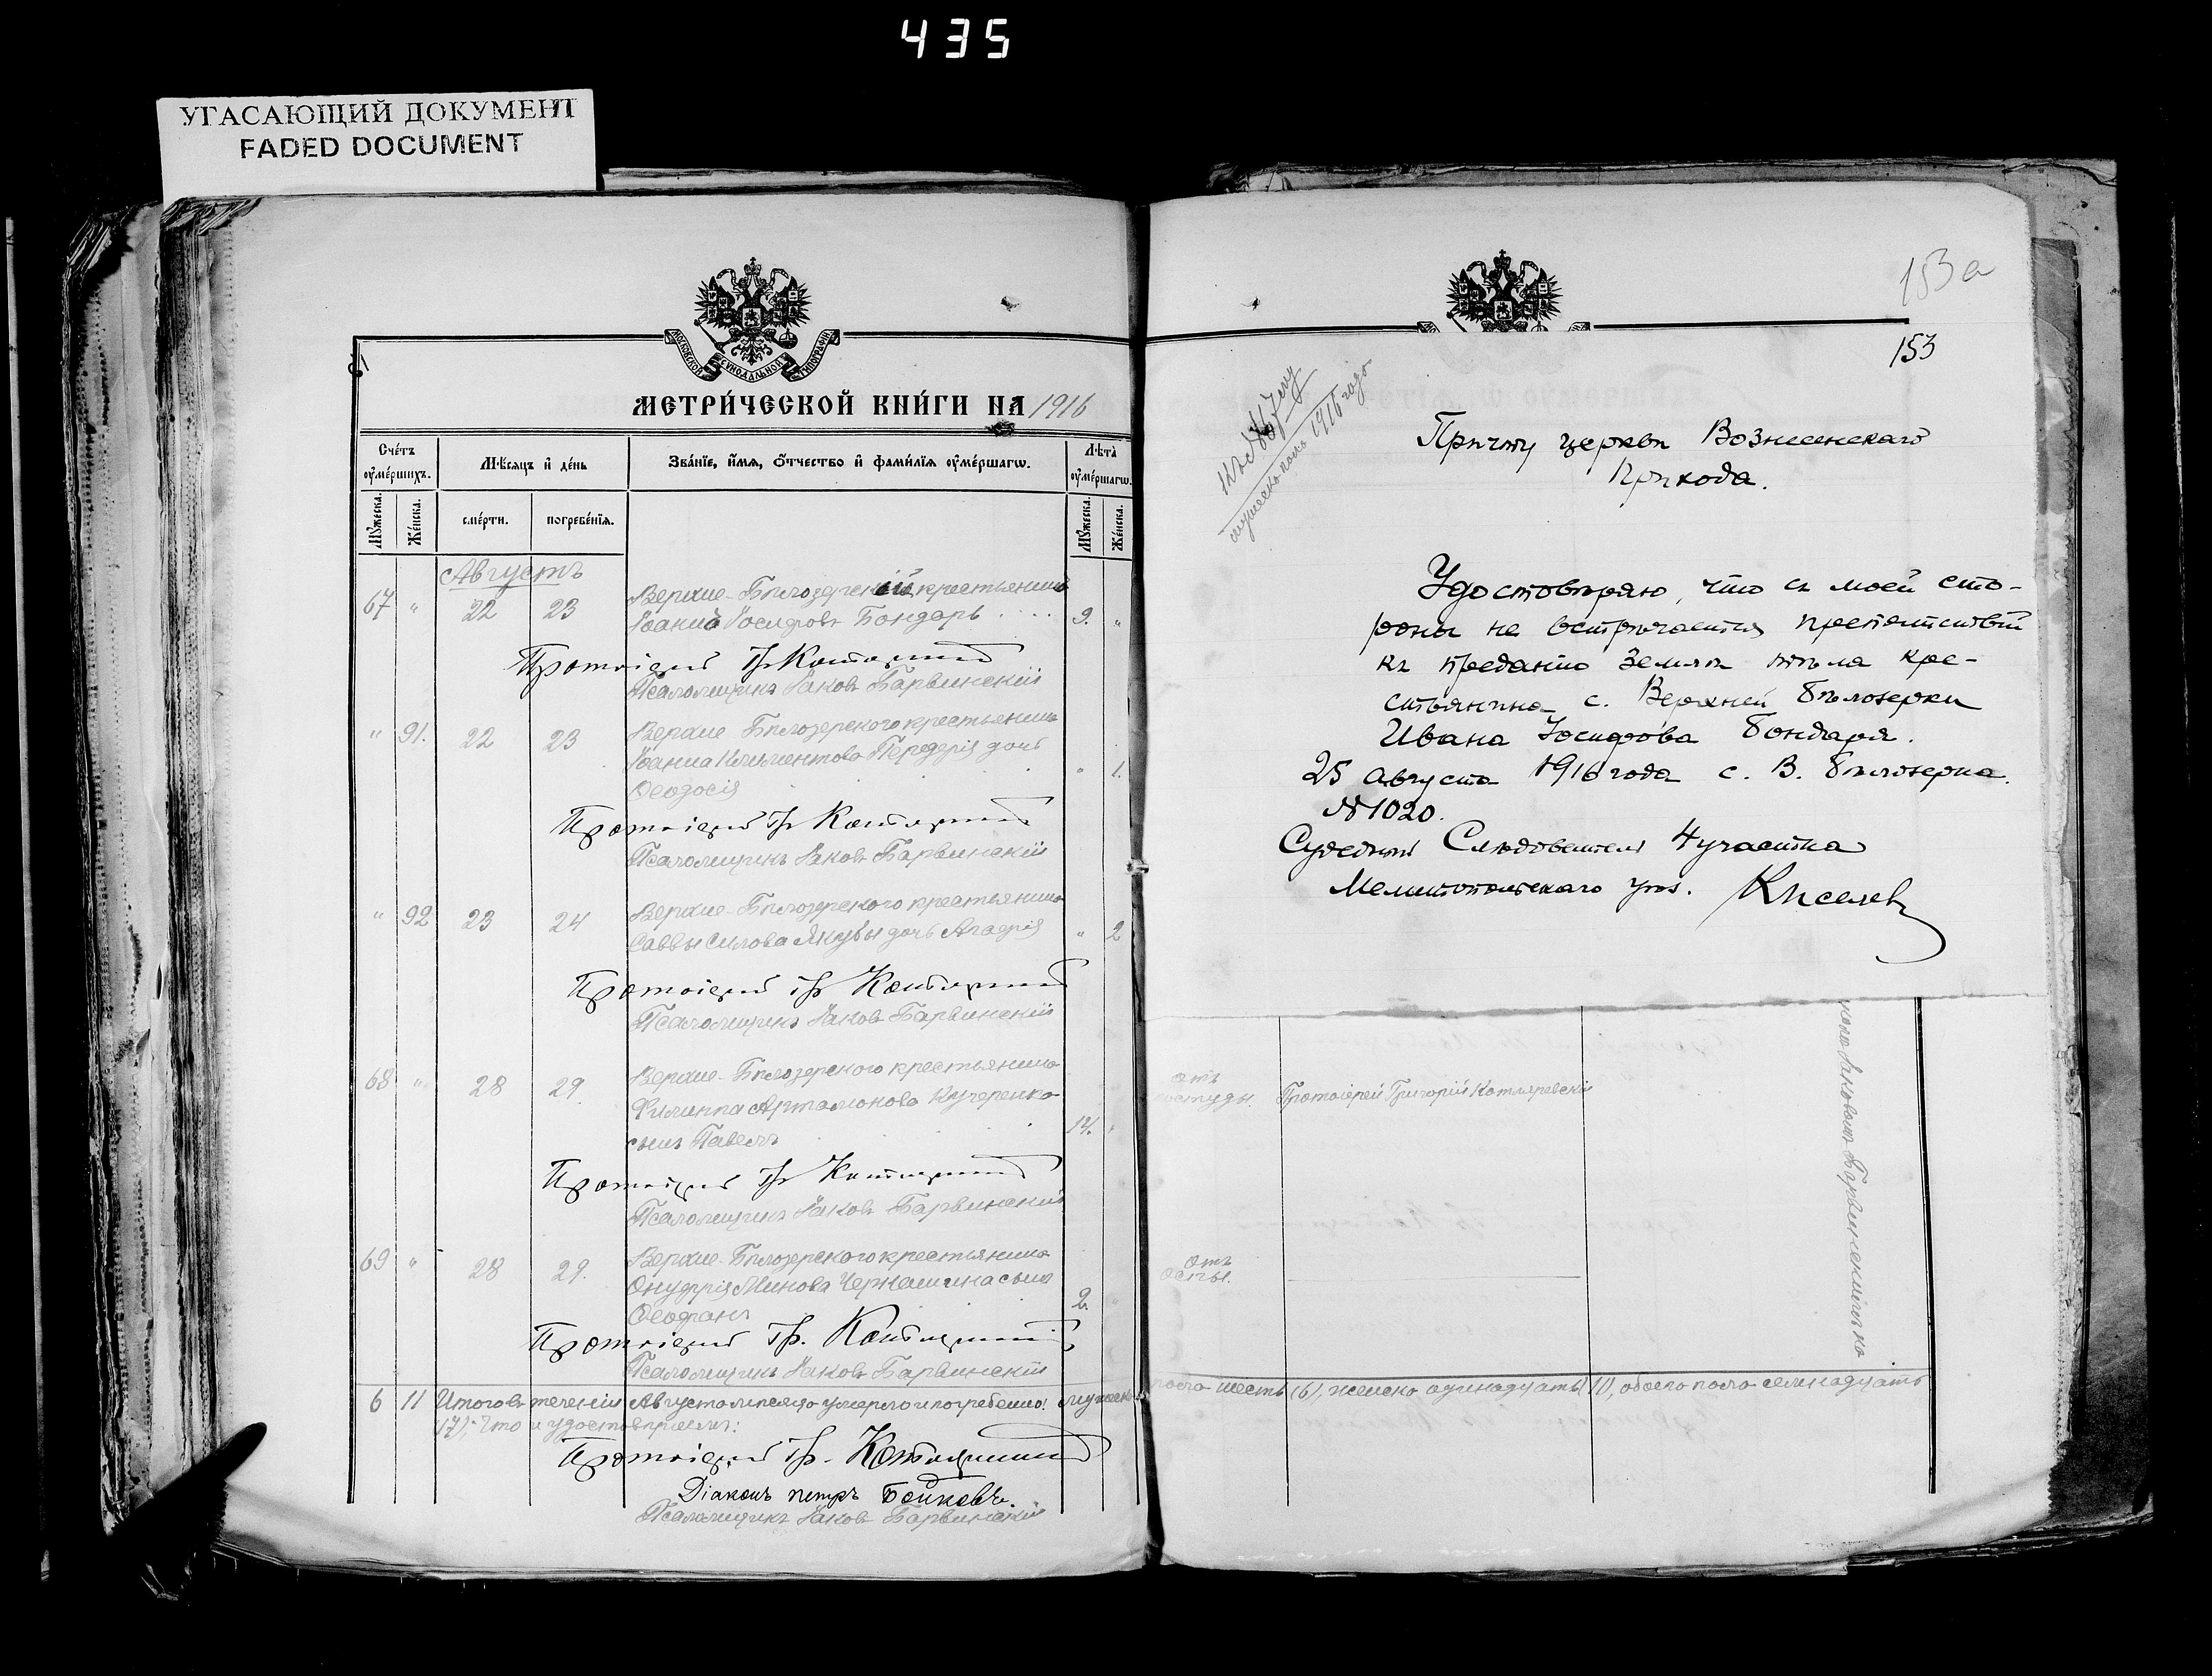 435
УГАСАЮЩИЙ ДОКУМЕНТ
FADED DOCUMENT
МОСКОВСКОЙ СѴНОДАЛЬНОЙ ТИПОГРАФІИ
МЕТРИ́ЧЕСКОЙ КНИ́ГИ НА 1916
Сче́тъ ᲂу҆ме́ршихъ.
Мѣ́сяцъ и҆ де́нь
Зва́нїе, и҆́мя, ѻ҆́тчество и҆ фами́лїя ᲂу҆ме́ршагѡ.
Лѣта̀ ᲂу҆ме́ршагѡ.
Мꙋ́жеска.
Же́нска.
сме́рти.
погребе́нїя.
Мꙋ́жеска.
Же́нска.
Августъ
67 " 22 23 Верхне-Бѣлозерскій крестьянинъ
Іоаннъ Іосифовъ Бондарь . . . . 9. "
Протоіерей Гр Котляревскій
Псаломщикъ Іаковъ Барвинскій
" 91. 22 23 Верхне Бѣлозерского крестьянина
Іоанна Климентова Передерія дочь
Ѳеодосія " 1.
Протоіерей Гр Котляревскій
Псаломщикъ Іаковъ Барвинскій
" 92 23 24 Верхне-Бѣлозерского крестьянина
Саввы Силова Якубы дочь Агафія " 2
Протоіерей Гр Котляревскій
Псаломщикъ Іаковъ Барвинскій
68 " 28 29. Верхне-Бѣлозерского крестьянина
Филиппа Артамонова Кучеренко
сынъ Павелъ 14. "
Протоіерей Гр Котляревскій
Псаломщикъ Іаковъ Барвинскій
69 " 28 29. Верхне-Бѣлозерского крестьянина
Онуфрія Минова Чернашина сынъ
Ѳеофанъ 2.
Протоіерей Гр. Котляревскій
Псаломщикъ Іаковъ Барвинскій
6 11 Итого въ теченіи Августа мѣсяца умерло и погребено: мужеска
17); Что и удостовѣряемъ:
Протоіерей Гр. Котляревскій
Діаконъ Петръ Бойковъ.
Псаломщикъ Іаковъ Барвинскій
153а
153
мужеск. полъ 1916 года
Причту церкви Вознесенскаго
Прихода.
Удостовѣряю, что съ моей сто-
роны не встрѣчается препятствій
къ преданію землѣ тѣла кре-
стьянина с. Верхней Бѣлозерки
Ивана Іосифова Бондаря.
25 Августа 1916 года с. В. Бѣлозерка.
№ 1020.
Судебный Слѣдователь 4 участка
Мелитопольскаго уѣз. Киселев
отъ
простуды.
Протоіерей Григорій Котляревскій
Іаковомъ Барвинскимъ на
отъ
оспы.
пола шесть (6), женска одинадцать (11), обоего пола семнадцать